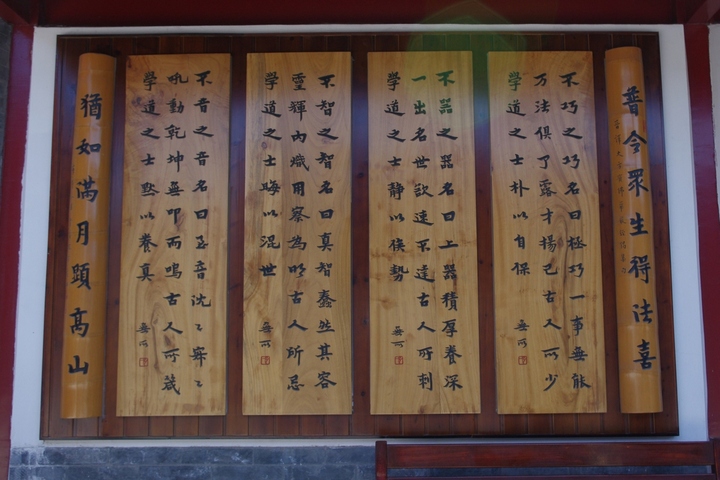 普令眾生得法喜
不巧之巧名曰極巧一事無能
万法俱了露才揚己古人所少
学道之士朴以自保
無所
不器之器名曰上器積厚養深
一出名世欲速不達古人所刺
学道之士静以俟勢
無所
不智之智名曰真智蠢然其容
霊輝内熾用察為明古人所忌
学道之士晦以混世
無所
不音之音名曰至音沈々寂々
吼動乾坤無叩而鳴古人所箴
学道之士黙以養真
無所
猶如満月顕高山